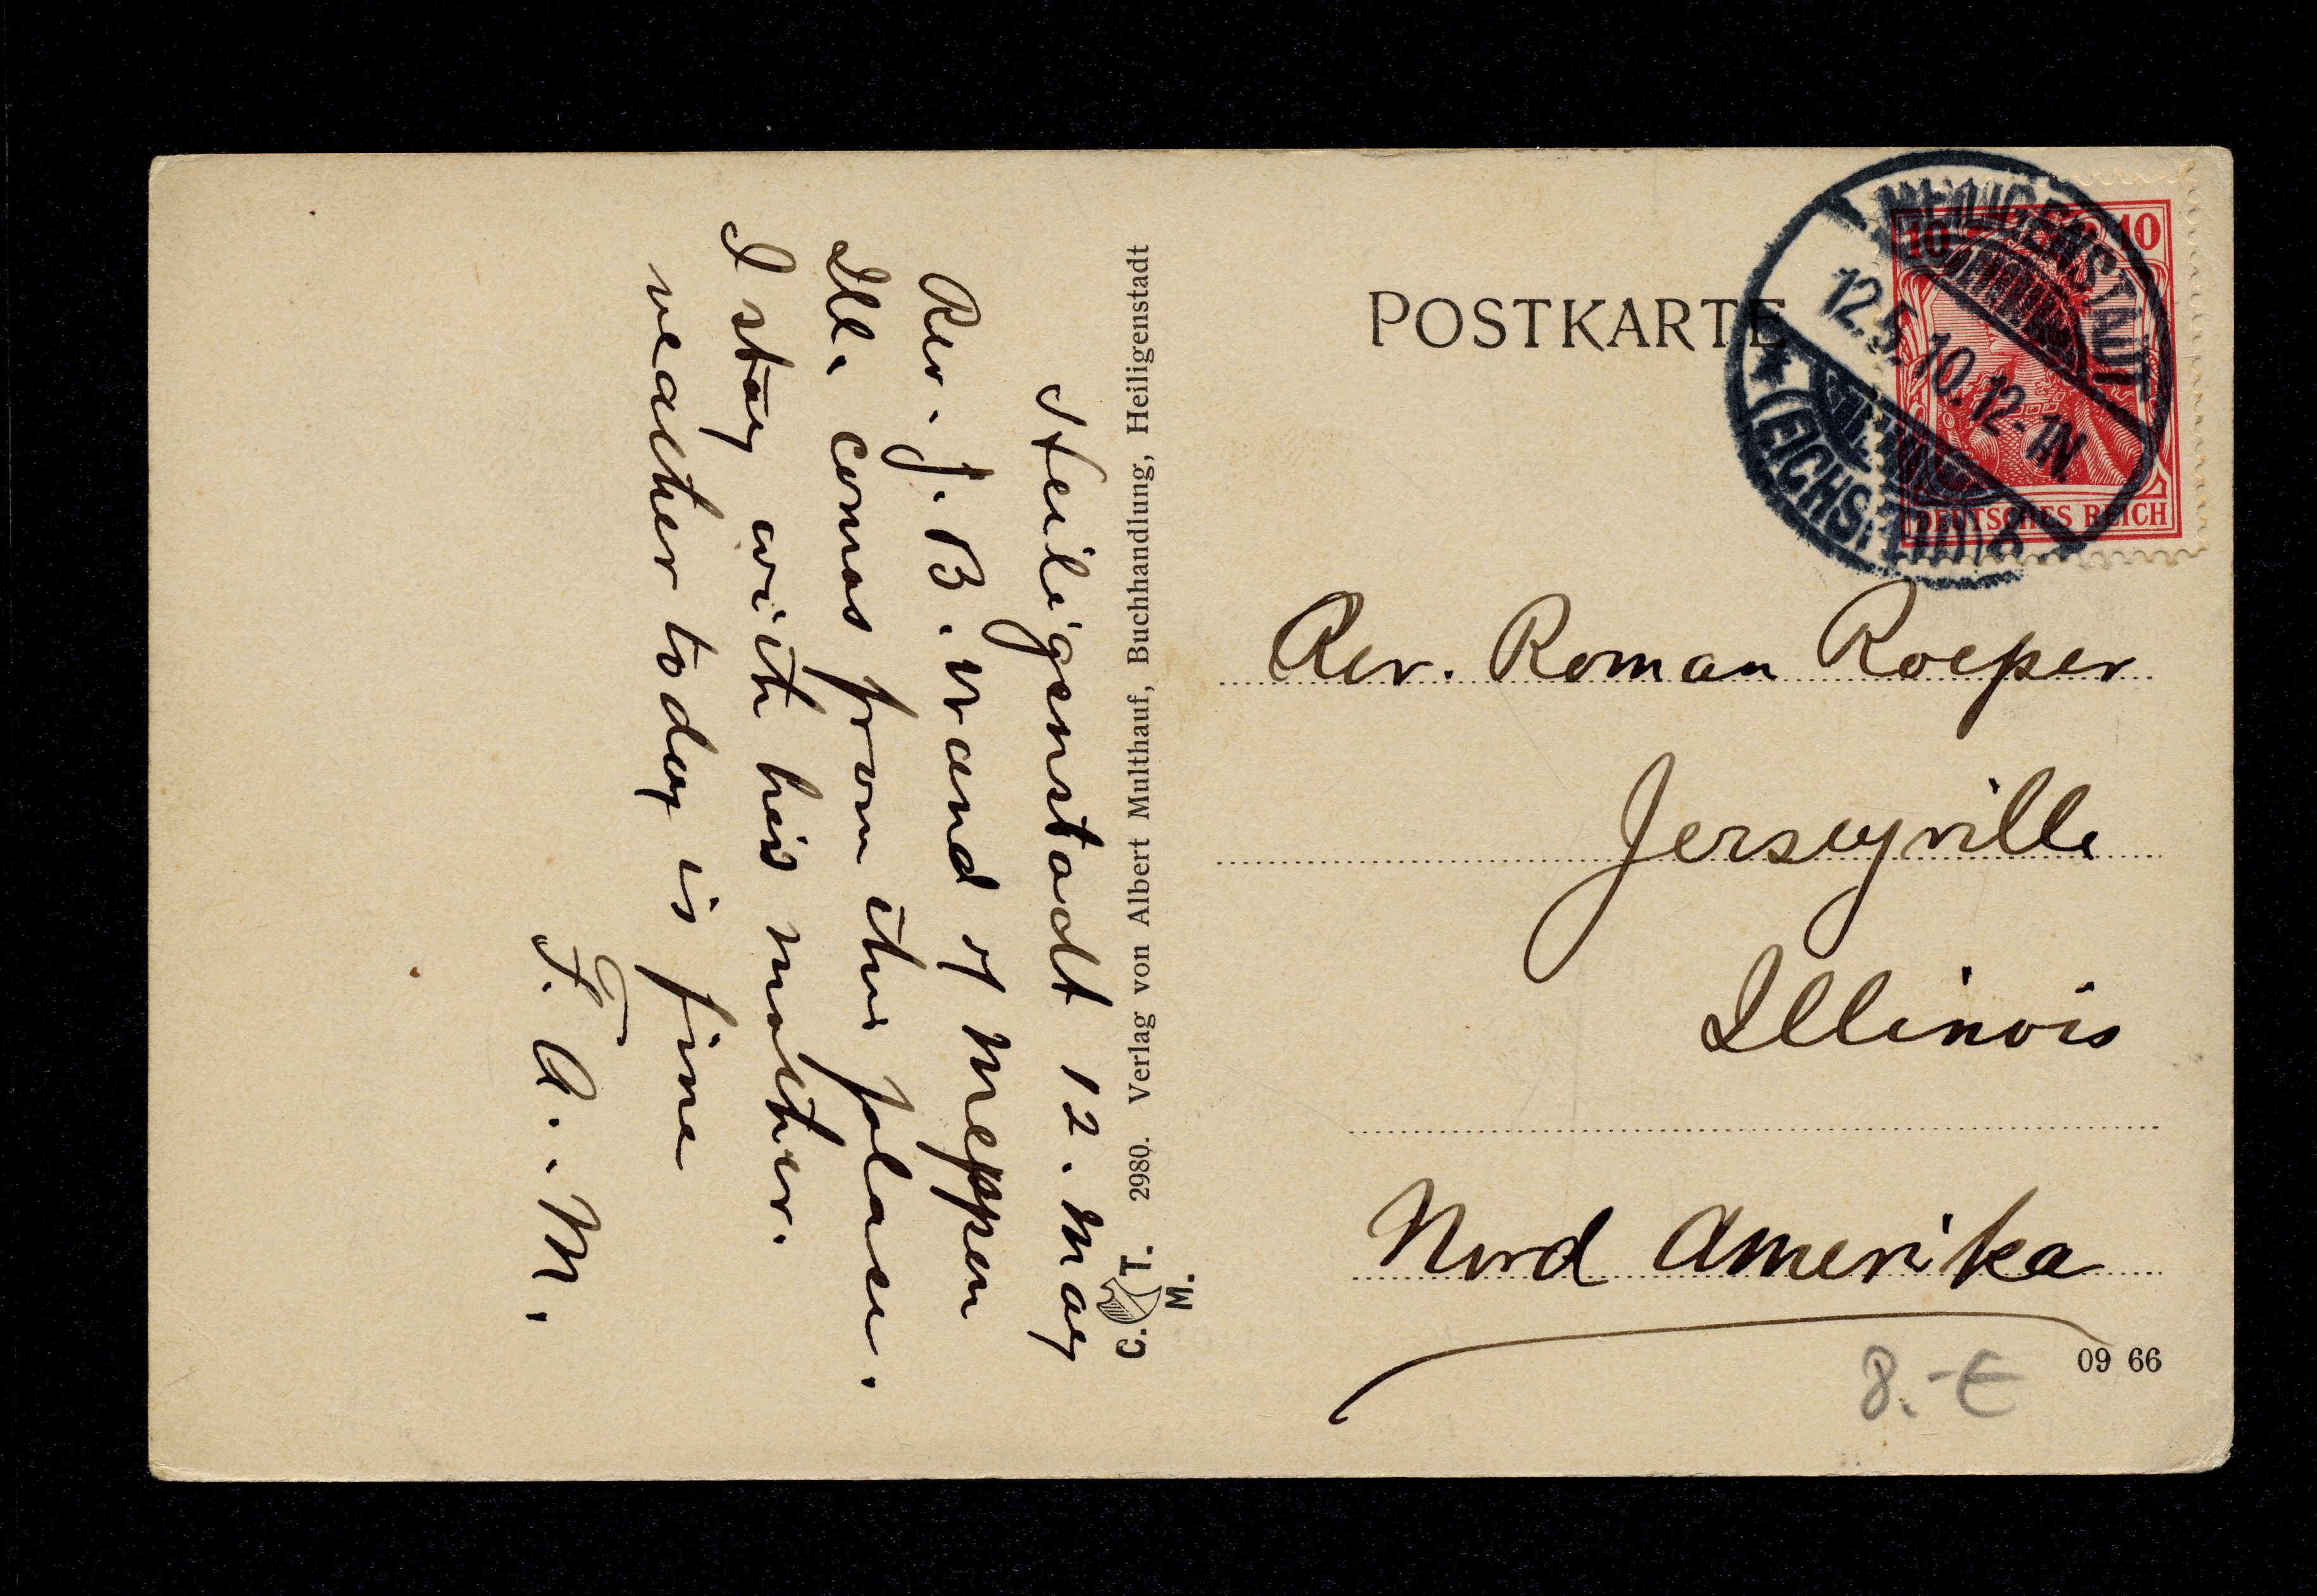 POSTKARTE
HEILIGENSTADT
12.5.10.12-1N.
* (EICHSFELD)
10 10
DEUTSCHES REICH
Rev. Roman Roeper
Jerseyville
Illinois
Nord Amerika
09 66
8.-€
2980. Verlag von Albert Multhauf, Buchhandlung, Heiligenstadt
C. T.
M.
Heiligenstadt 12. May
Rev. J. B. of Meppen
Ill. comes from this place.
I stay with his mother.
weather today is fine
F. A. M.